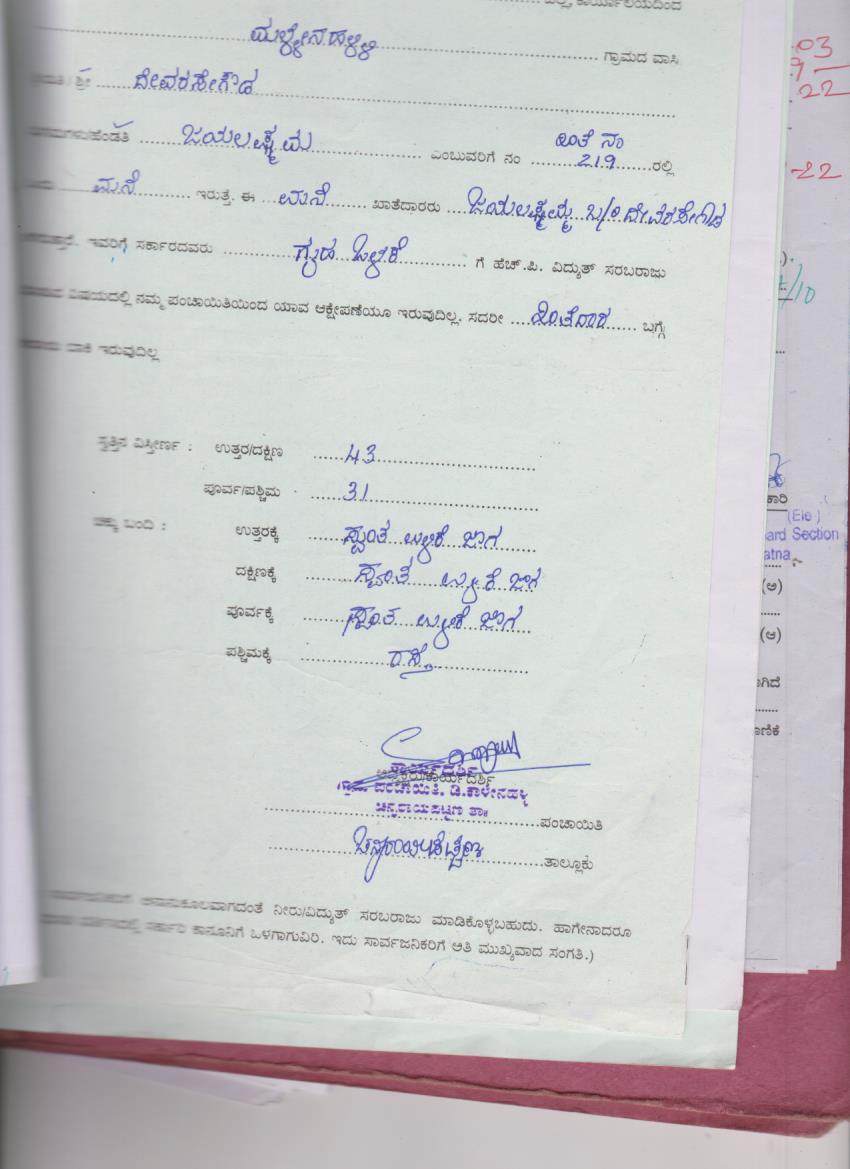 ಕಾರ್ಯಾಲಯದಿಂದ
ಮಳ್ಳೇನಹಳ್ಳಿ ಗ್ರಾಮದ ವಾಸಿ
ಶ್ರೀ ದೇವರಸೇಗೌಡ
ಹೆಂಡತಿ ಜಯಲಕ್ಷ್ಮಮ ಎಂಬುವರಿಗೆ ನಂ 219 ರಲ್ಲಿ
ಮನೆ ಇರುತ್ತೆ. ಈ ಮನೆ ಖಾತೆದಾರರು ಜಯಲಕ್ಷ್ಮಮ್ಮ
ಇವರಿಗೆ ಸರ್ಕಾರದವರು ಗೃಹ ಬಳಕೆ ಗೆ ಹೆಚ್.ಪಿ. ವಿದ್ಯುತ್ ಸರಬರಾಜು
ವಿಷಯದಲ್ಲಿ ನಮ್ಮ ಪಂಚಾಯಿತಿಯಿಂದ ಯಾವ ಆಕ್ಷೇಪಣೆಯೂ ಇರುವುದಿಲ್ಲ. ಸದರೀ ಬಗ್ಗೆ
ಬಾಕಿ ಇರುವುದಿಲ್ಲ
ಸ್ವತ್ತಿನ ವಿಸ್ತೀರ್ಣ : ಉತ್ತರ/ದಕ್ಷಿಣ 43
ಪೂರ್ವ/ಪಶ್ಚಿಮ 31
ಚಕ್ಕು ಬಂದಿ : ಉತ್ತರಕ್ಕೆ ಸ್ವಂತ ಉಳಿಕೆ ಜಾಗ
ದಕ್ಷಿಣಕ್ಕೆ ಸ್ವಂತ ಉಳಿಕೆ ಜಾಗ
ಪೂರ್ವಕ್ಕೆ ಸ್ವಂತ ಉಳಿಕೆ ಜಾಗ
ಪಶ್ಚಿಮಕ್ಕೆ ರಸ್ತೆ
ಕಾರ್ಯದರ್ಶಿ
ಅಧ್ಯಕ್ಷರು/ಕಾರ್ಯದರ್ಶಿ
ಗ್ರಾಮ ಪಂಚಾಯಿತಿ, ಡಿ.ಕಾಳೇನಹಳ್ಳಿ
ಚನ್ನರಾಯಪಟ್ಟಣ ತಾ||
ಪಂಚಾಯಿತಿ
ಚನ್ನರಾಯಪಟ್ಟಣ ತಾಲ್ಲೂಕು
ಅನಾನುಕೂಲವಾಗದಂತೆ ನೀರು/ವಿದ್ಯುತ್ ಸರಬರಾಜು ಮಾಡಿಕೊಳ್ಳಬಹುದು. ಹಾಗೇನಾದರೂ
ಸರ್ಕಾರಿ ಕಾನೂನಿಗೆ ಒಳಗಾಗುವಿರಿ. ಇದು ಸಾರ್ವಜನಿಕರಿಗೆ ಅತಿ ಮುಖ್ಯವಾದ ಸಂಗತಿ.)
03
22
-22
/10
ಕಾರಿ
(Ele )
ard Section
atna
(ಅ)
(ಆ)